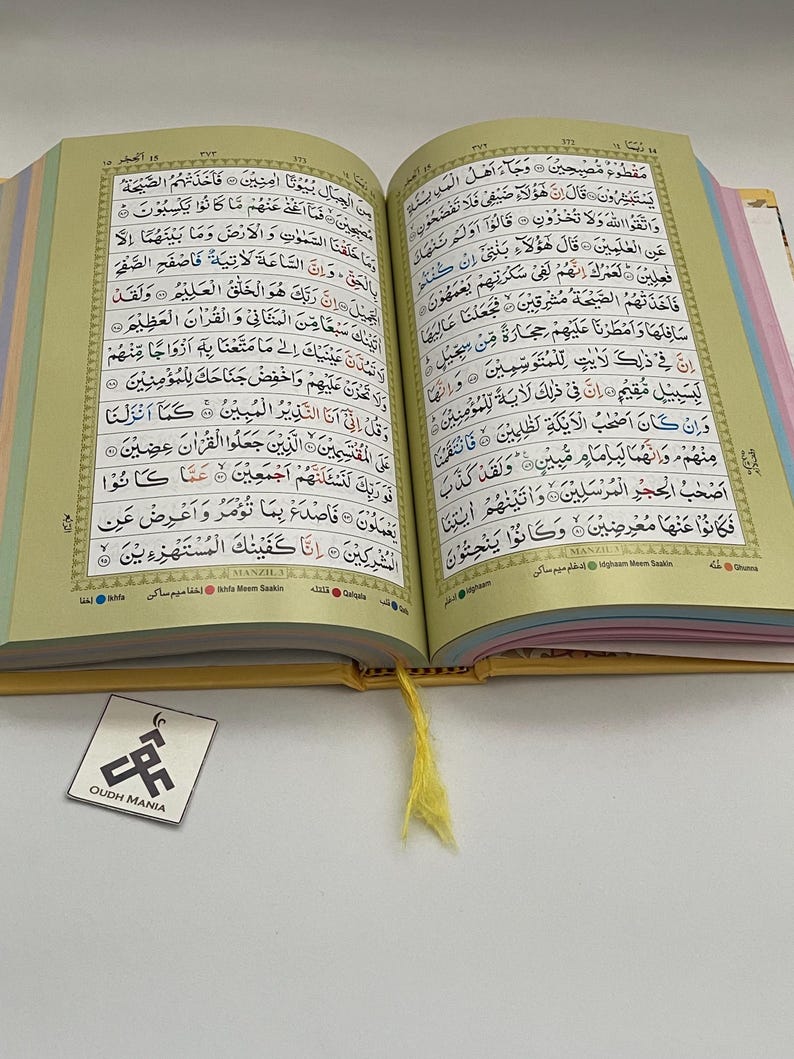 14 رُبَمَا ١٤ 372 ٣٧٢ 15 اَلْحِجْر
مَّقْطُوْعٌ مُّصْبِحِيْنَ ٦٦ وَجَآءَ اَهْلُ الْمَدِيْنَةِ
يَسْتَبْشِرُوْنَ ٦٧ قَالَ اِنَّ هٰٓؤُلَآءِ ضَيْفِيْ فَلَا تَفْضَحُوْنِ ٦٨
وَاتَّقُوا اللّٰهَ وَلَا تُخْزُوْنِ ٦٩ قَالُوْٓا اَوَلَمْ نَنْهَكَ
عَنِ الْعٰلَمِيْنَ ٧٠ قَالَ هٰٓؤُلَآءِ بَنٰتِيْٓ اِنْ كُنْتُمْ
فٰعِلِيْنَ ٧١ لَعَمْرُكَ اِنَّهُمْ لَفِيْ سَكْرَتِهِمْ يَعْمَهُوْنَ ٧٢
فَاَخَذَتْهُمُ الصَّيْحَةُ مُشْرِقِيْنَ ٧٣ فَجَعَلْنَا عَالِيَهَا
سَافِلَهَا وَاَمْطَرْنَا عَلَيْهِمْ حِجَارَةً مِّنْ سِجِّيْلٍ ٧٤
اِنَّ فِيْ ذٰلِكَ لَاٰيٰتٍ لِّلْمُتَوَسِّمِيْنَ ٧٥ وَاِنَّهَا
لَبِسَبِيْلٍ مُّقِيْمٍ ٧٦ اِنَّ فِيْ ذٰلِكَ لَاٰيَةً لِّلْمُؤْمِنِيْنَ ٧٧
وَاِنْ كَانَ اَصْحٰبُ الْاَيْكَةِ لَظٰلِمِيْنَ ٧٨ فَانْتَقَمْنَا
مِنْهُمْ ۘ وَاِنَّهُمَا لَبِاِمَامٍ مُّبِيْنٍ ٧٩ وَلَقَدْ كَذَّبَ
اَصْحٰبُ الْحِجْرِ الْمُرْسَلِيْنَ ٨٠ وَاٰتَيْنٰهُمْ اٰيٰتِنَا
فَكَانُوْا عَنْهَا مُعْرِضِيْنَ ٨١ وَكَانُوْا يَنْحِتُوْنَ
MANZIL 3
غُنّه Ghunna ادغام میم ساکن Idghaam Meem Saakin ادغام Idghaam
15 اَلْحِجْر ١٥ ٣٧٣ 373 رُبَمَا ١٤
مِنَ الْجِبَالِ بُيُوْتًا اٰمِنِيْنَ ٨٢ فَاَخَذَتْهُمُ الصَّيْحَةُ
مُصْبِحِيْنَ ٨٣ فَمَآ اَغْنٰى عَنْهُمْ مَّا كَانُوْا يَكْسِبُوْنَ ٨٤
وَمَا خَلَقْنَا السَّمٰوٰتِ وَالْاَرْضَ وَمَا بَيْنَهُمَآ اِلَّا
بِالْحَقِّ ؕ وَاِنَّ السَّاعَةَ لَاٰتِيَةٌ فَاصْفَحِ الصَّفْحَ
الْجَمِيْلَ ٨٥ اِنَّ رَبَّكَ هُوَ الْخَلّٰقُ الْعَلِيْمُ ٨٦ وَلَقَدْ
اٰتَيْنٰكَ سَبْعًا مِّنَ الْمَثَانِيْ وَالْقُرْاٰنَ الْعَظِيْمَ ٨٧
لَا تَمُدَّنَّ عَيْنَيْكَ اِلٰى مَا مَتَّعْنَا بِهٖٓ اَزْوَاجًا مِّنْهُمْ
وَلَا تَحْزَنْ عَلَيْهِمْ وَاخْفِضْ جَنَاحَكَ لِلْمُؤْمِنِيْنَ ٨٨
وَقُلْ اِنِّيْٓ اَنَا النَّذِيْرُ الْمُبِيْنُ ٨٩ كَمَآ اَنْزَلْنَا
عَلَى الْمُقْتَسِمِيْنَ ٩٠ الَّذِيْنَ جَعَلُوا الْقُرْاٰنَ عِضِيْنَ ٩١
فَوَرَبِّكَ لَنَسْـَٔلَنَّهُمْ اَجْمَعِيْنَ ٩٢ عَمَّا كَانُوْا
يَعْمَلُوْنَ ٩٣ فَاصْدَعْ بِمَا تُؤْمَرُ وَاَعْرِضْ عَنِ
الْمُشْرِكِيْنَ ٩٤ اِنَّا كَفَيْنٰكَ الْمُسْتَهْزِءِيْنَ ٩٥
MANZIL 3
قلب Qalb قلقله Qalqala اخفا میم ساکن Ikhfa Meem Saakin اخفا Ikhfa
OUDH MANIA